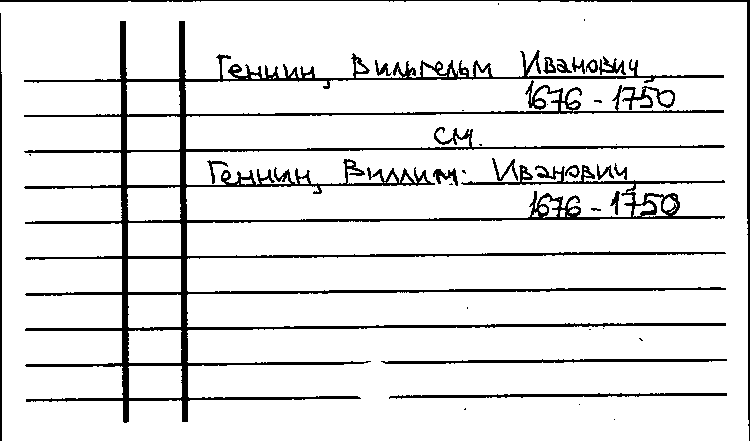 Геннин, Вильгельм Иванович,
1676 - 1750
см.
Геннин, Виллим Иванович,
1676 - 1750